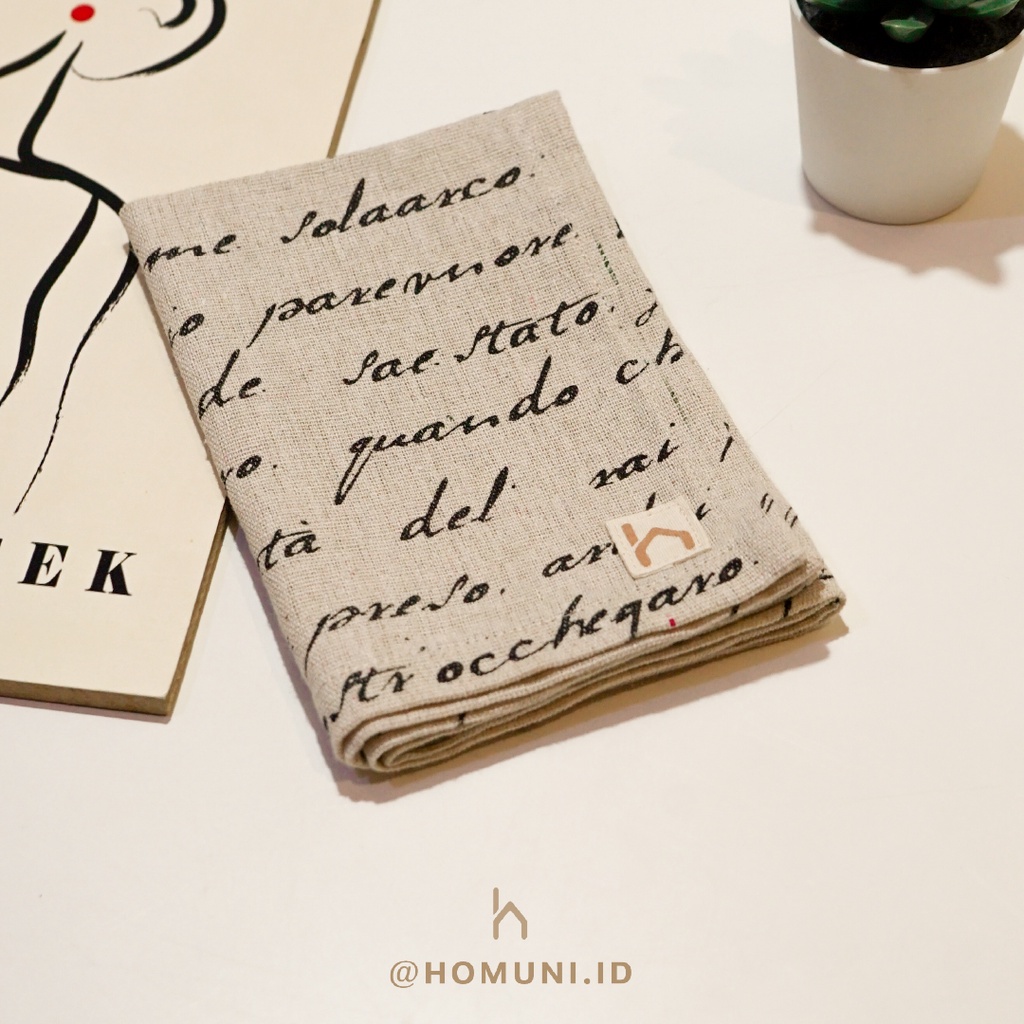 me solaarco.
io parevuore
de sae stato.
ro. quando ch
tà del rai
preso. an
stri occhegaro.
EEK
@HOMUNI.ID